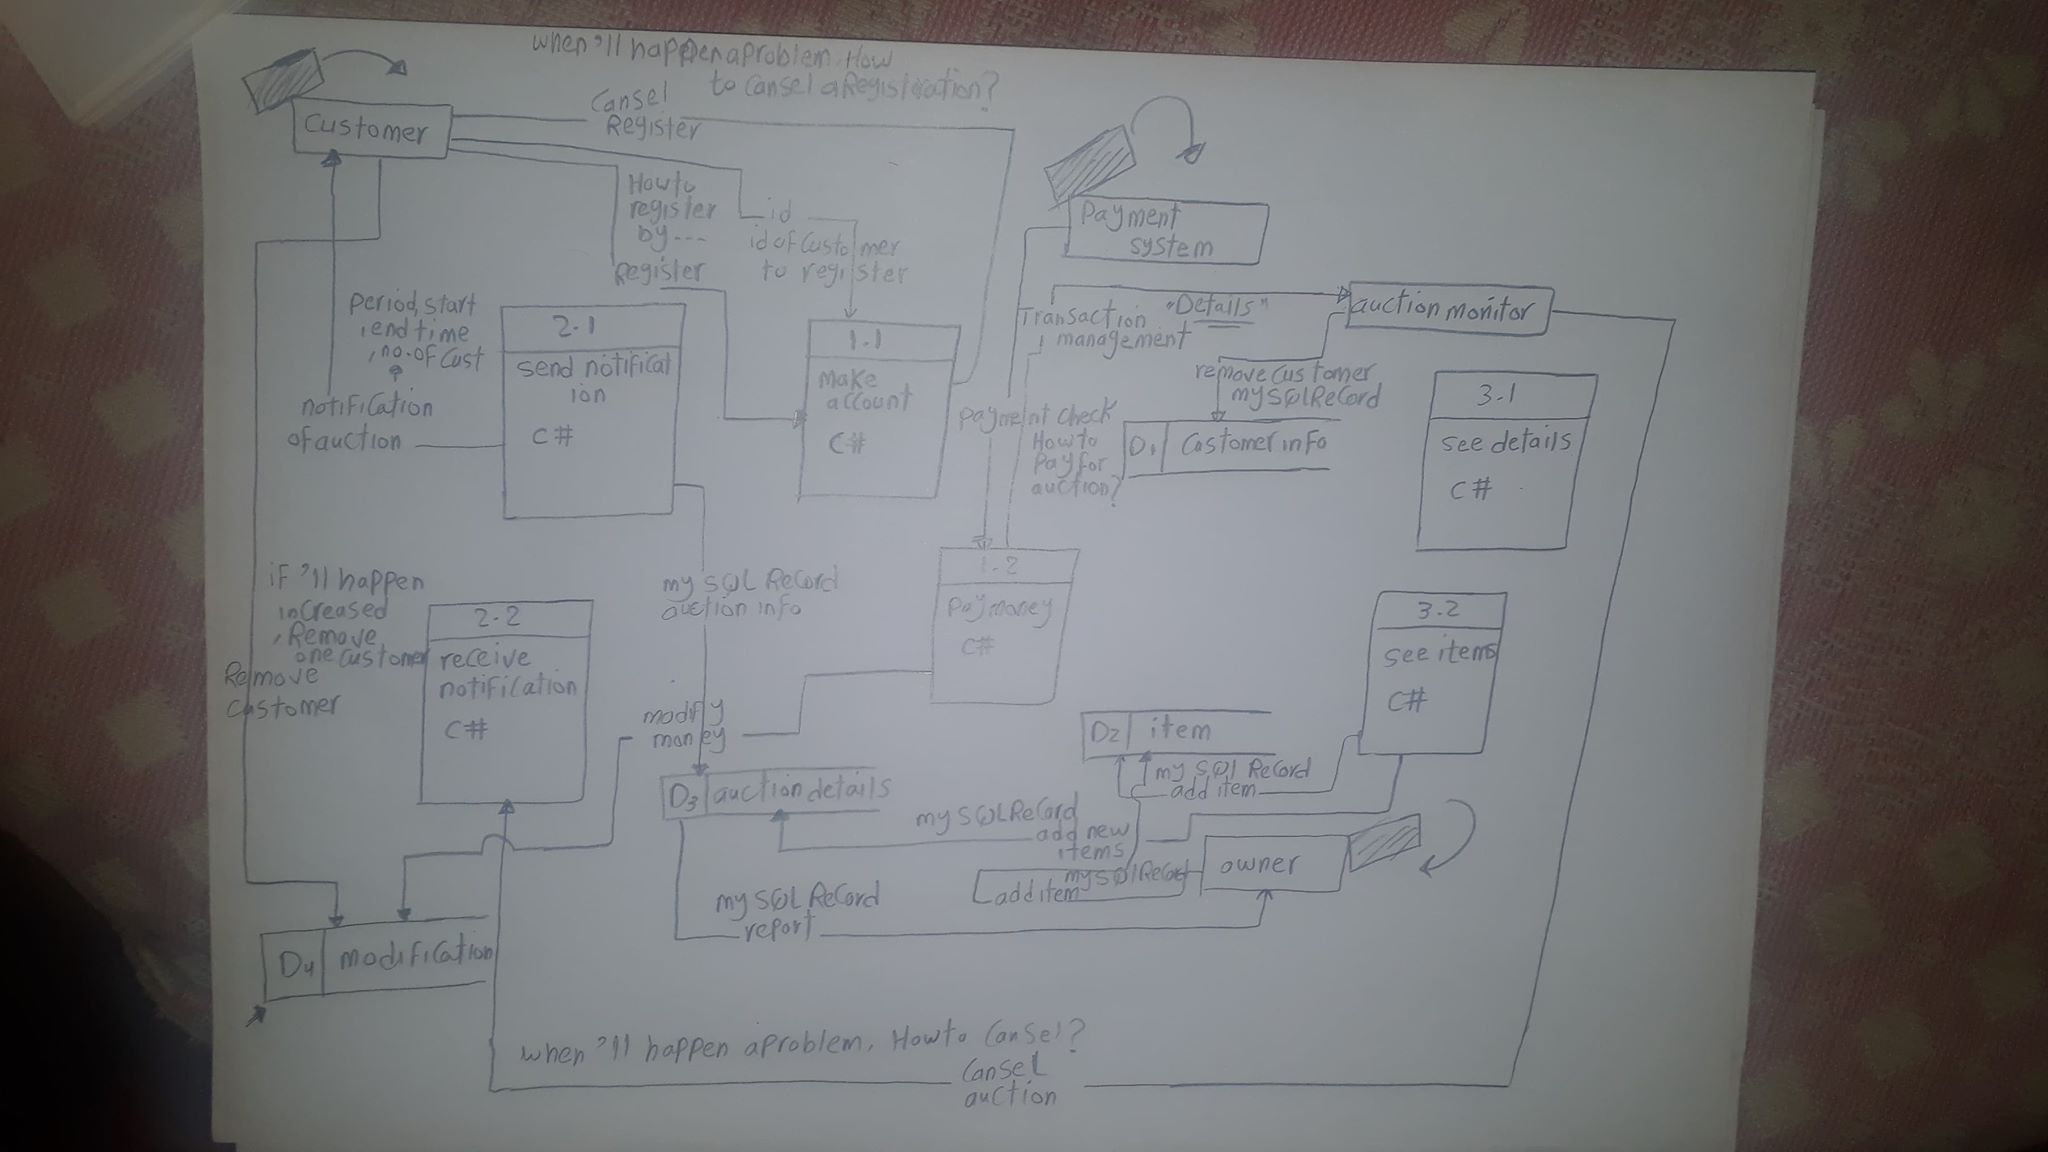 when'll happen a problem, How
to Cansel a Registration?
Customer
Cansel
Register
How to
register
by ---
Register
id
id of Customer
to register
Payment
system
Transaction
management
"Details"
auction monitor
remove customer
my SQL Record
D1 Customer info
period, start
, end time
, no. of Cust
notification
of auction
2.1
send notificat
ion
C#
1.1
Make
account
C#
Payment check
How to
Pay for
auction?
3.1
see details
C#
if 'll happen
increased
, Remove
one customer
Remove
Customer
2.2
receive
notification
C#
my SQL Record
auction info
1.2
Pay money
C#
3.2
see items
C#
modify
money
D2 item
my SQL Record
add item
D3 auction details
my SQL Record
add new
items
my SQL Record
add item
owner
my SQL Record
report
D4 modification
when'll happen a problem, How to Cansel?
Cansel
auction